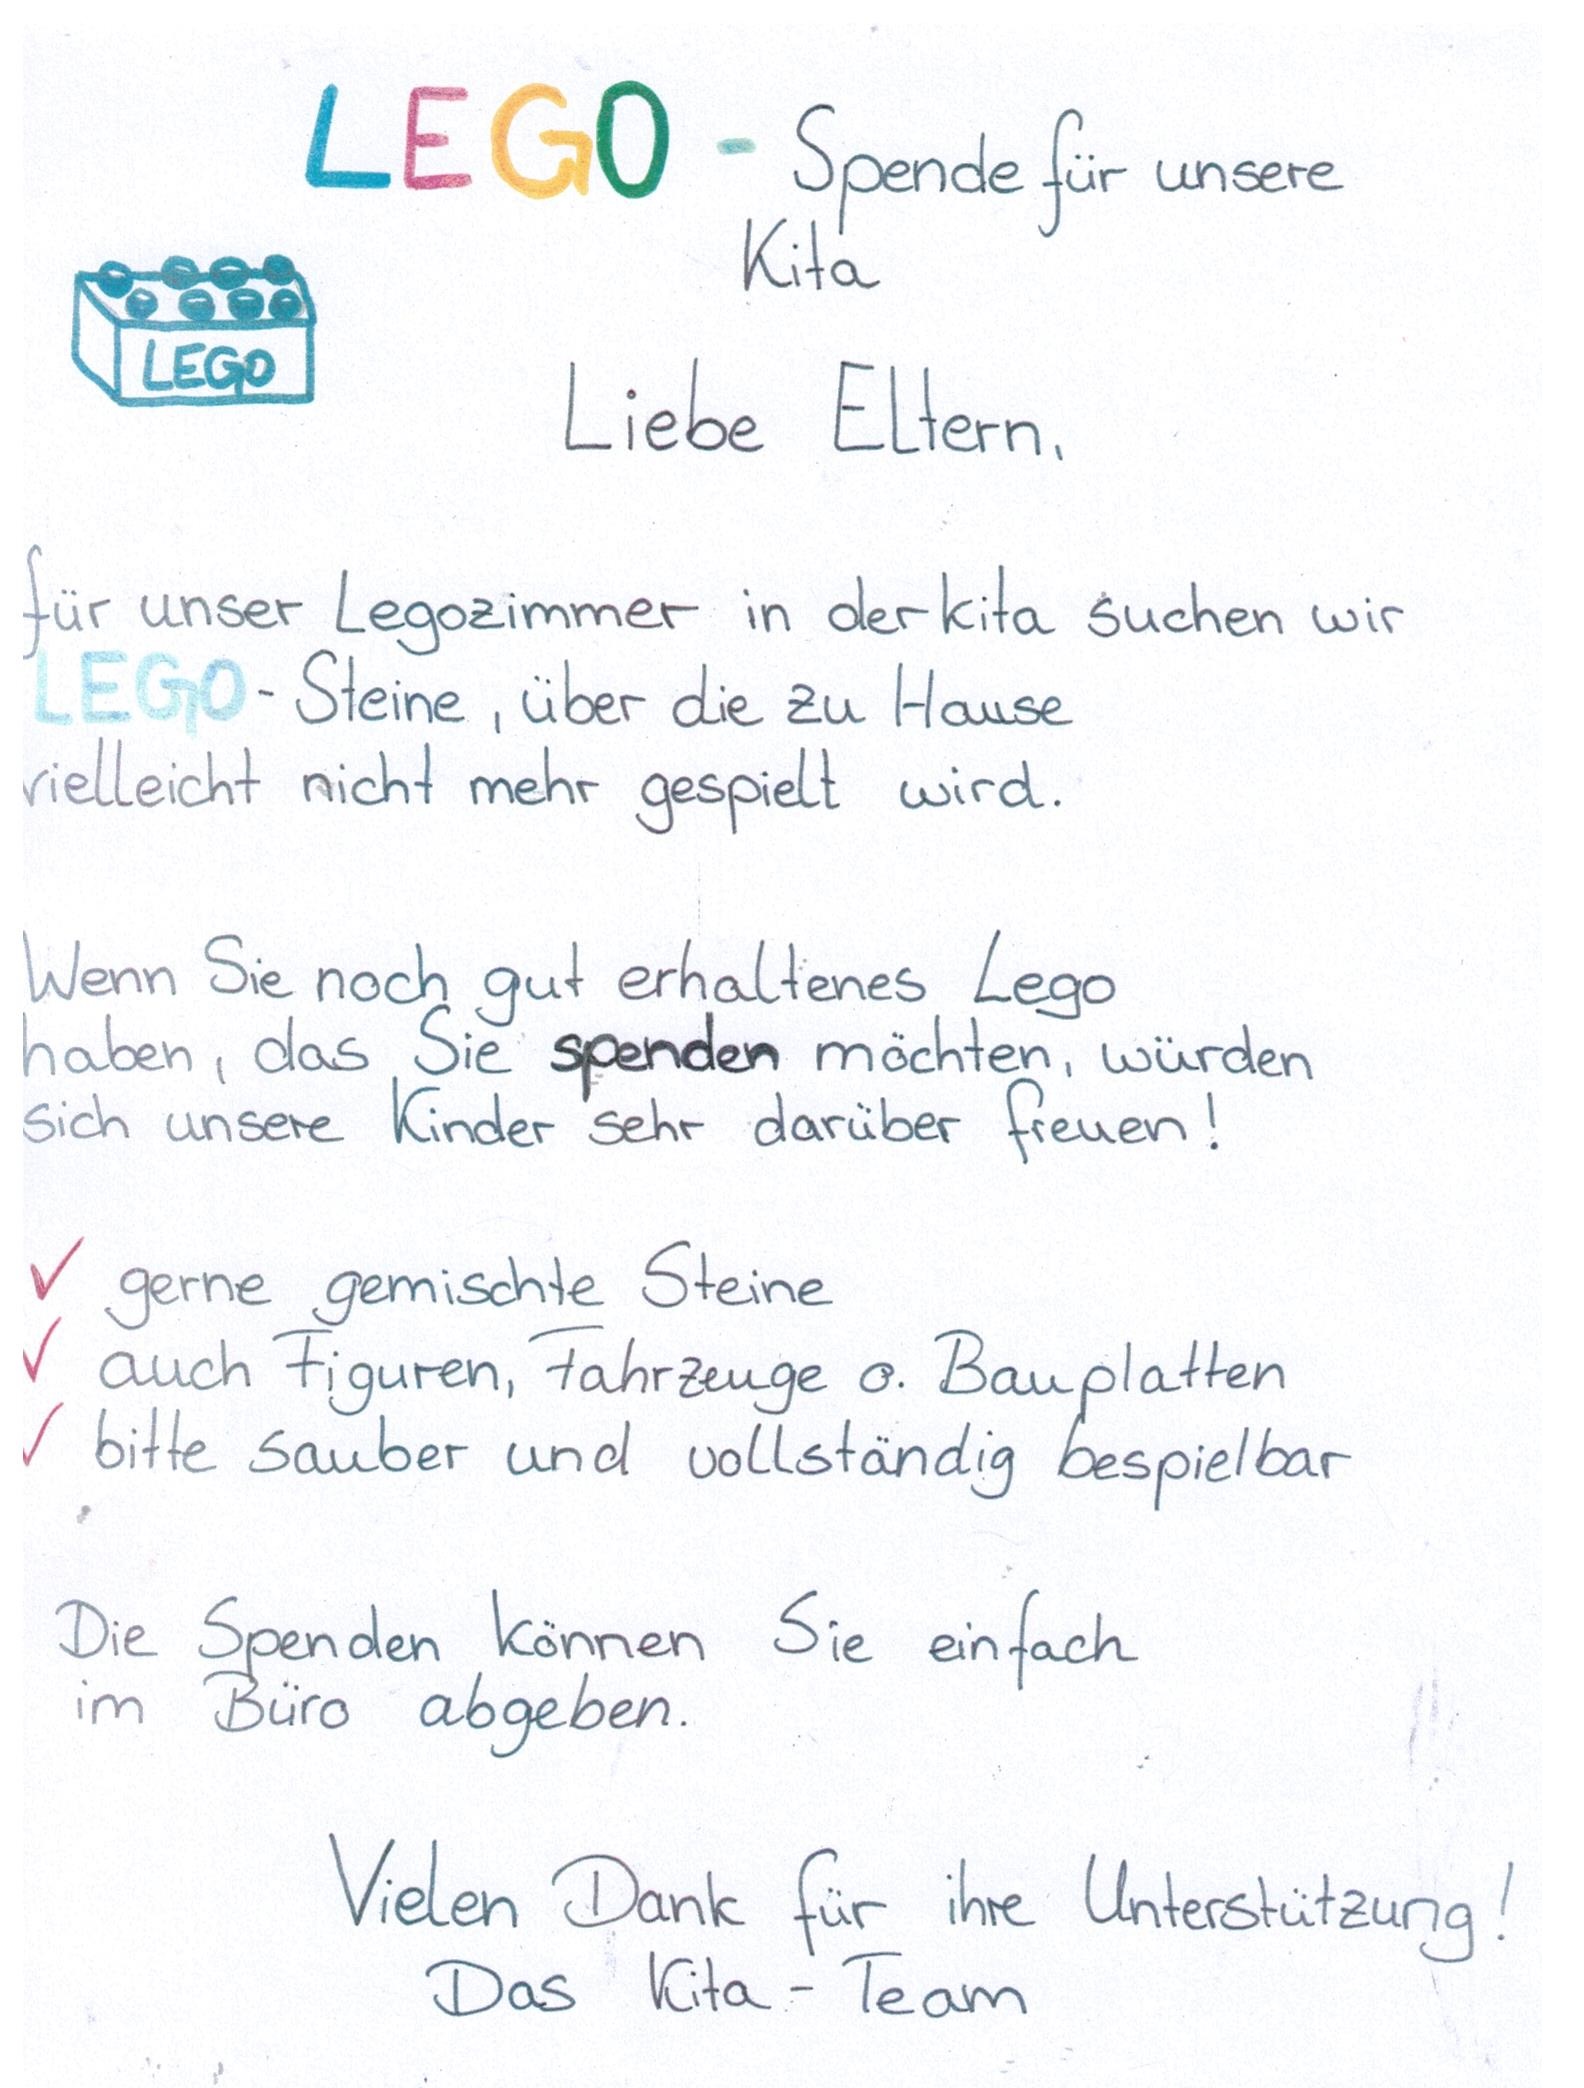 LEGO - Spende für unsere
Kita
LEGO
Liebe Eltern,
für unser Legozimmer in der kita suchen wir
LEGO - Steine, über die zu Hause
vielleicht nicht mehr gespielt wird.
Wenn Sie noch gut erhaltenes Lego
haben, das Sie spenden möchten, würden
sich unsere Kinder sehr darüber freuen!
✓ gerne gemischte Steine
✓ auch Figuren, Fahrzeuge o. Bauplatten
✓ bitte sauber und vollständig bespielbar
Die Spenden können Sie einfach
im Büro abgeben.
Vielen Dank für ihre Unterstützung!
Das Kita - Team